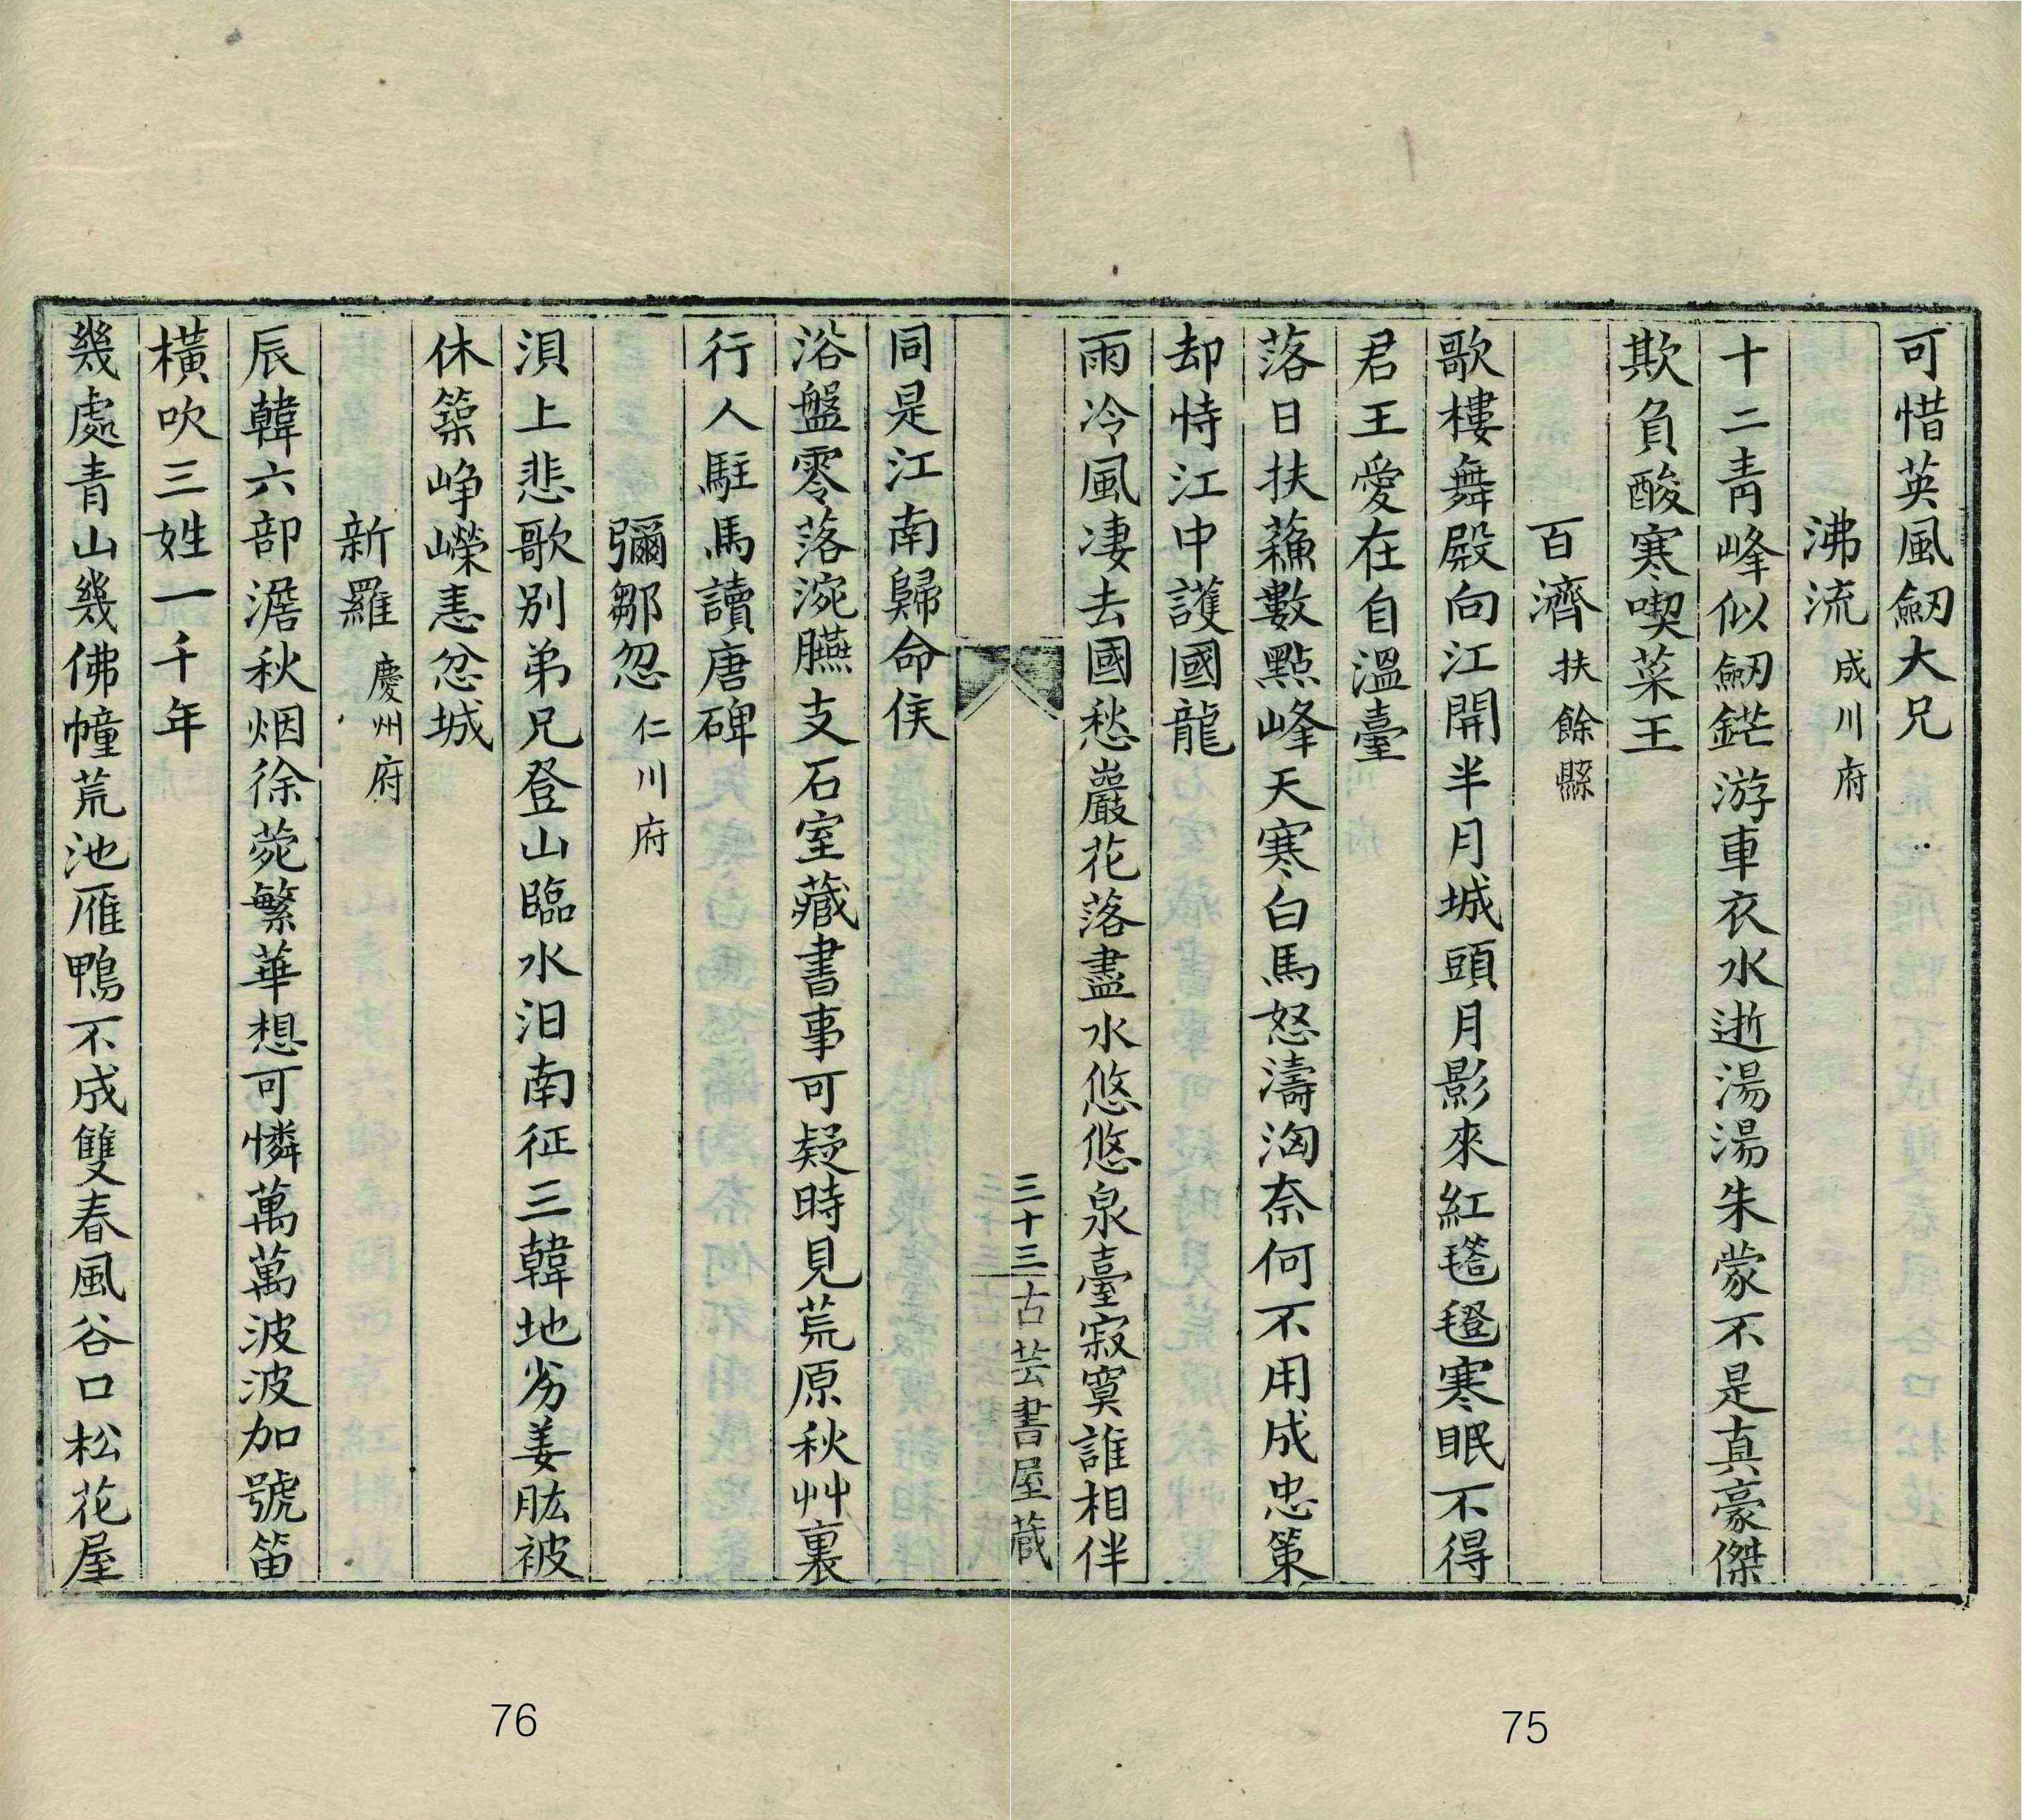 可惜英風劒大兄
沸流 成川府
十二靑峰似劒鋩游車衣水逝湯湯朱蒙不是真豪傑
欺負酸寒喫菜王
百濟 扶餘縣
歌樓舞殿向江開半月城頭月影來紅㲪毾寒眠不得
君王愛在自溫臺
落日扶蘓數點峰天寒白馬怒濤洶奈何不用成忠策
却恃江中護國龍
雨冷風凄去國愁巖花落盡水悠悠泉臺寂寞誰相伴
三十三 古芸書屋藏
同是江南歸命侯
浴盤零落涴臙支石室藏書事可疑時見荒原秋艸裏
行人駐馬讀唐碑
彌鄒忽 仁川府
浿上悲歌別弟兄登山臨水汨南征三韓地劣姜肱被
休築崢嶸恚忿城
新羅 慶州府
辰韓六部澹秋烟徐菀繁華想可憐萬萬波波加號笛
橫吹三姓一千年
幾處青山幾佛幢荒池雁鴨不成雙春風谷口松花屋
76
75